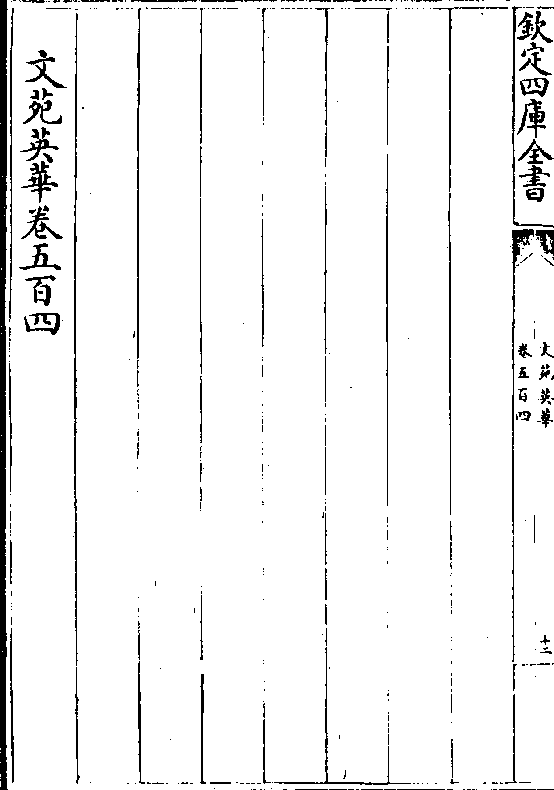 欽定四庫全書
文苑英華
卷五百四
十二
文苑英華卷五百四